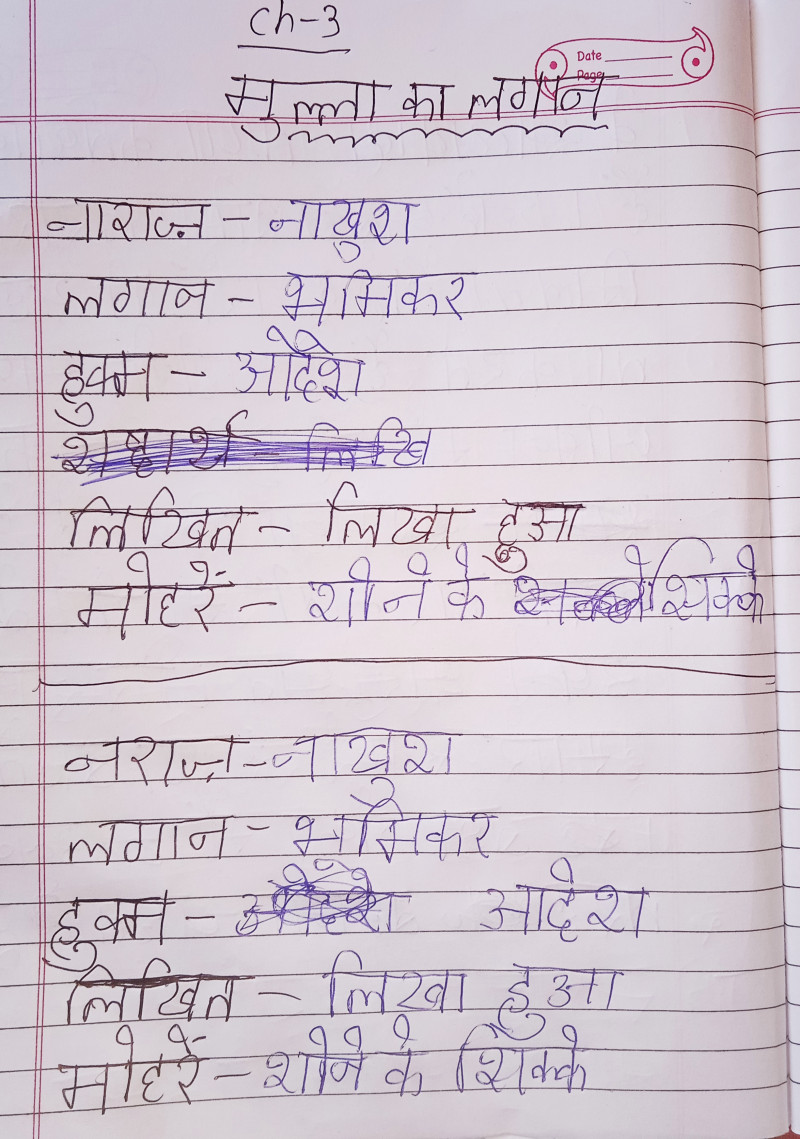 Ch-3
Date
Page
मुल्ला का लगान
नाराज़ - नाखुश
लगान - भूमिकर
हुक्म - आदेश
लिखित - लिखा हुआ
मोहरें - शोने के शिक्के
नराज़ - नाखुश
लगान - भूमिकर
हुक्म - आदेश
लिखित - लिखा हुआ
मोहरें - शोने के शिक्के